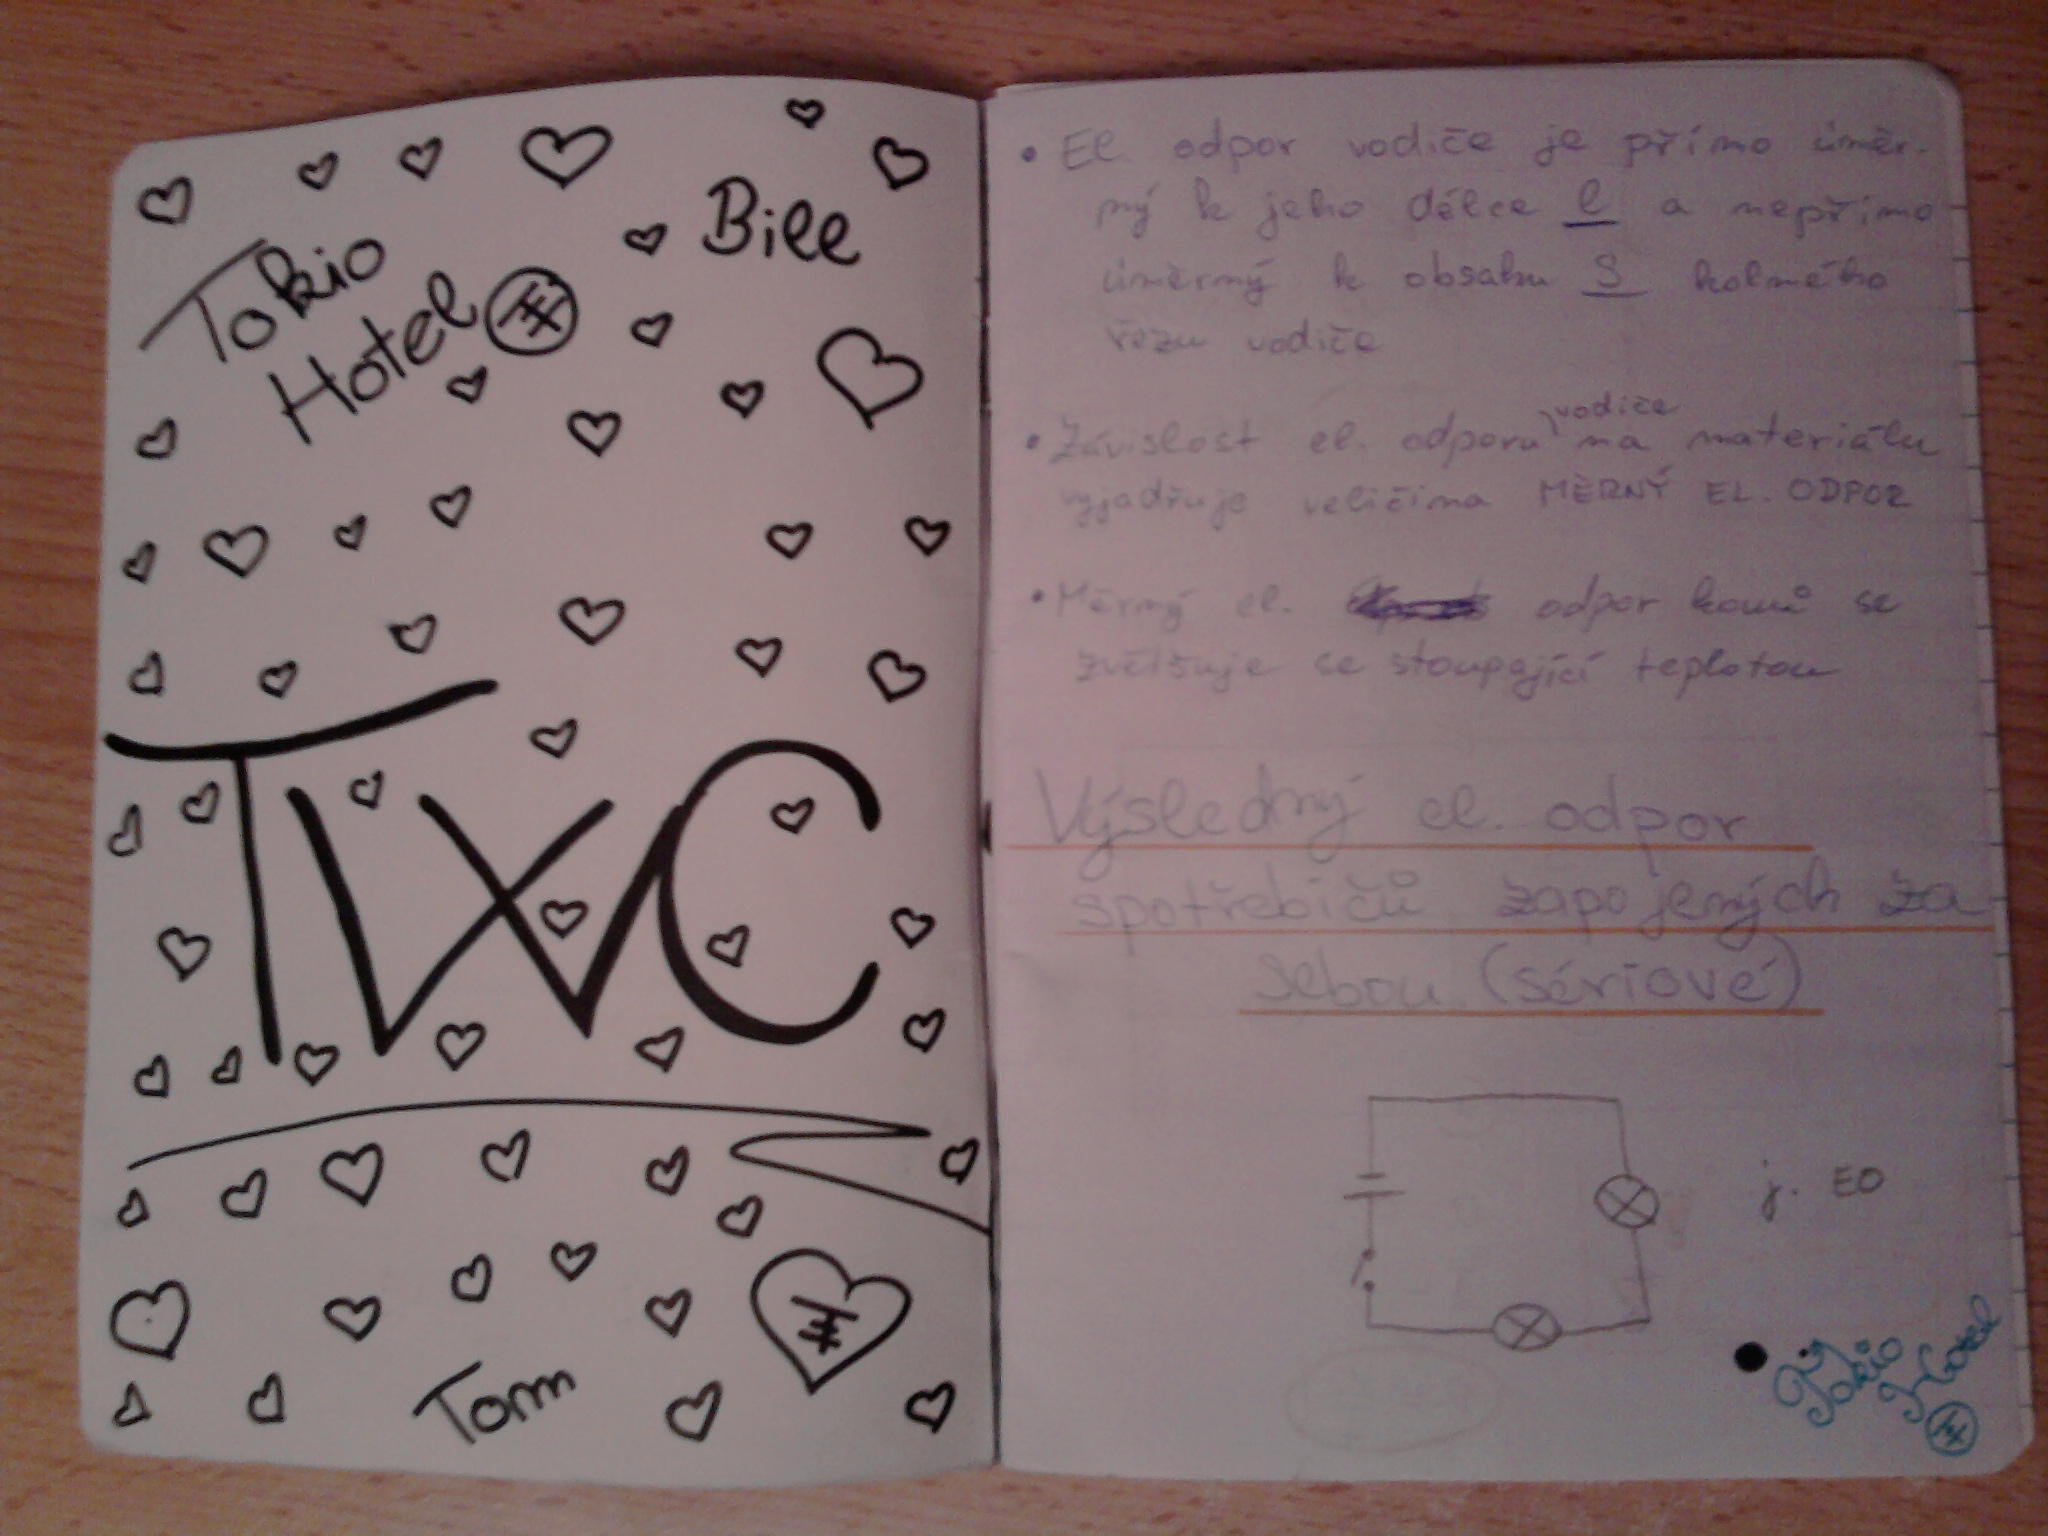 Tokio
Hotel
Bill
TWC
Tom
• El. odpor vodiče je přímo úměr-
ný k jeho délce l a nepřímo
úměrný k obsahu S kolmého
řezu vodiče
• Závislost el. odporu vodiče na materiálu
vyjadřuje veličina MĚRNÝ EL. ODPOR
• Měrný el. odpor kovů se
zvětšuje se stoupající teplotou
Výsledný el. odpor
spotřebičů zapojených za
sebou (sériové)
j. EO
Tokio
Hotel